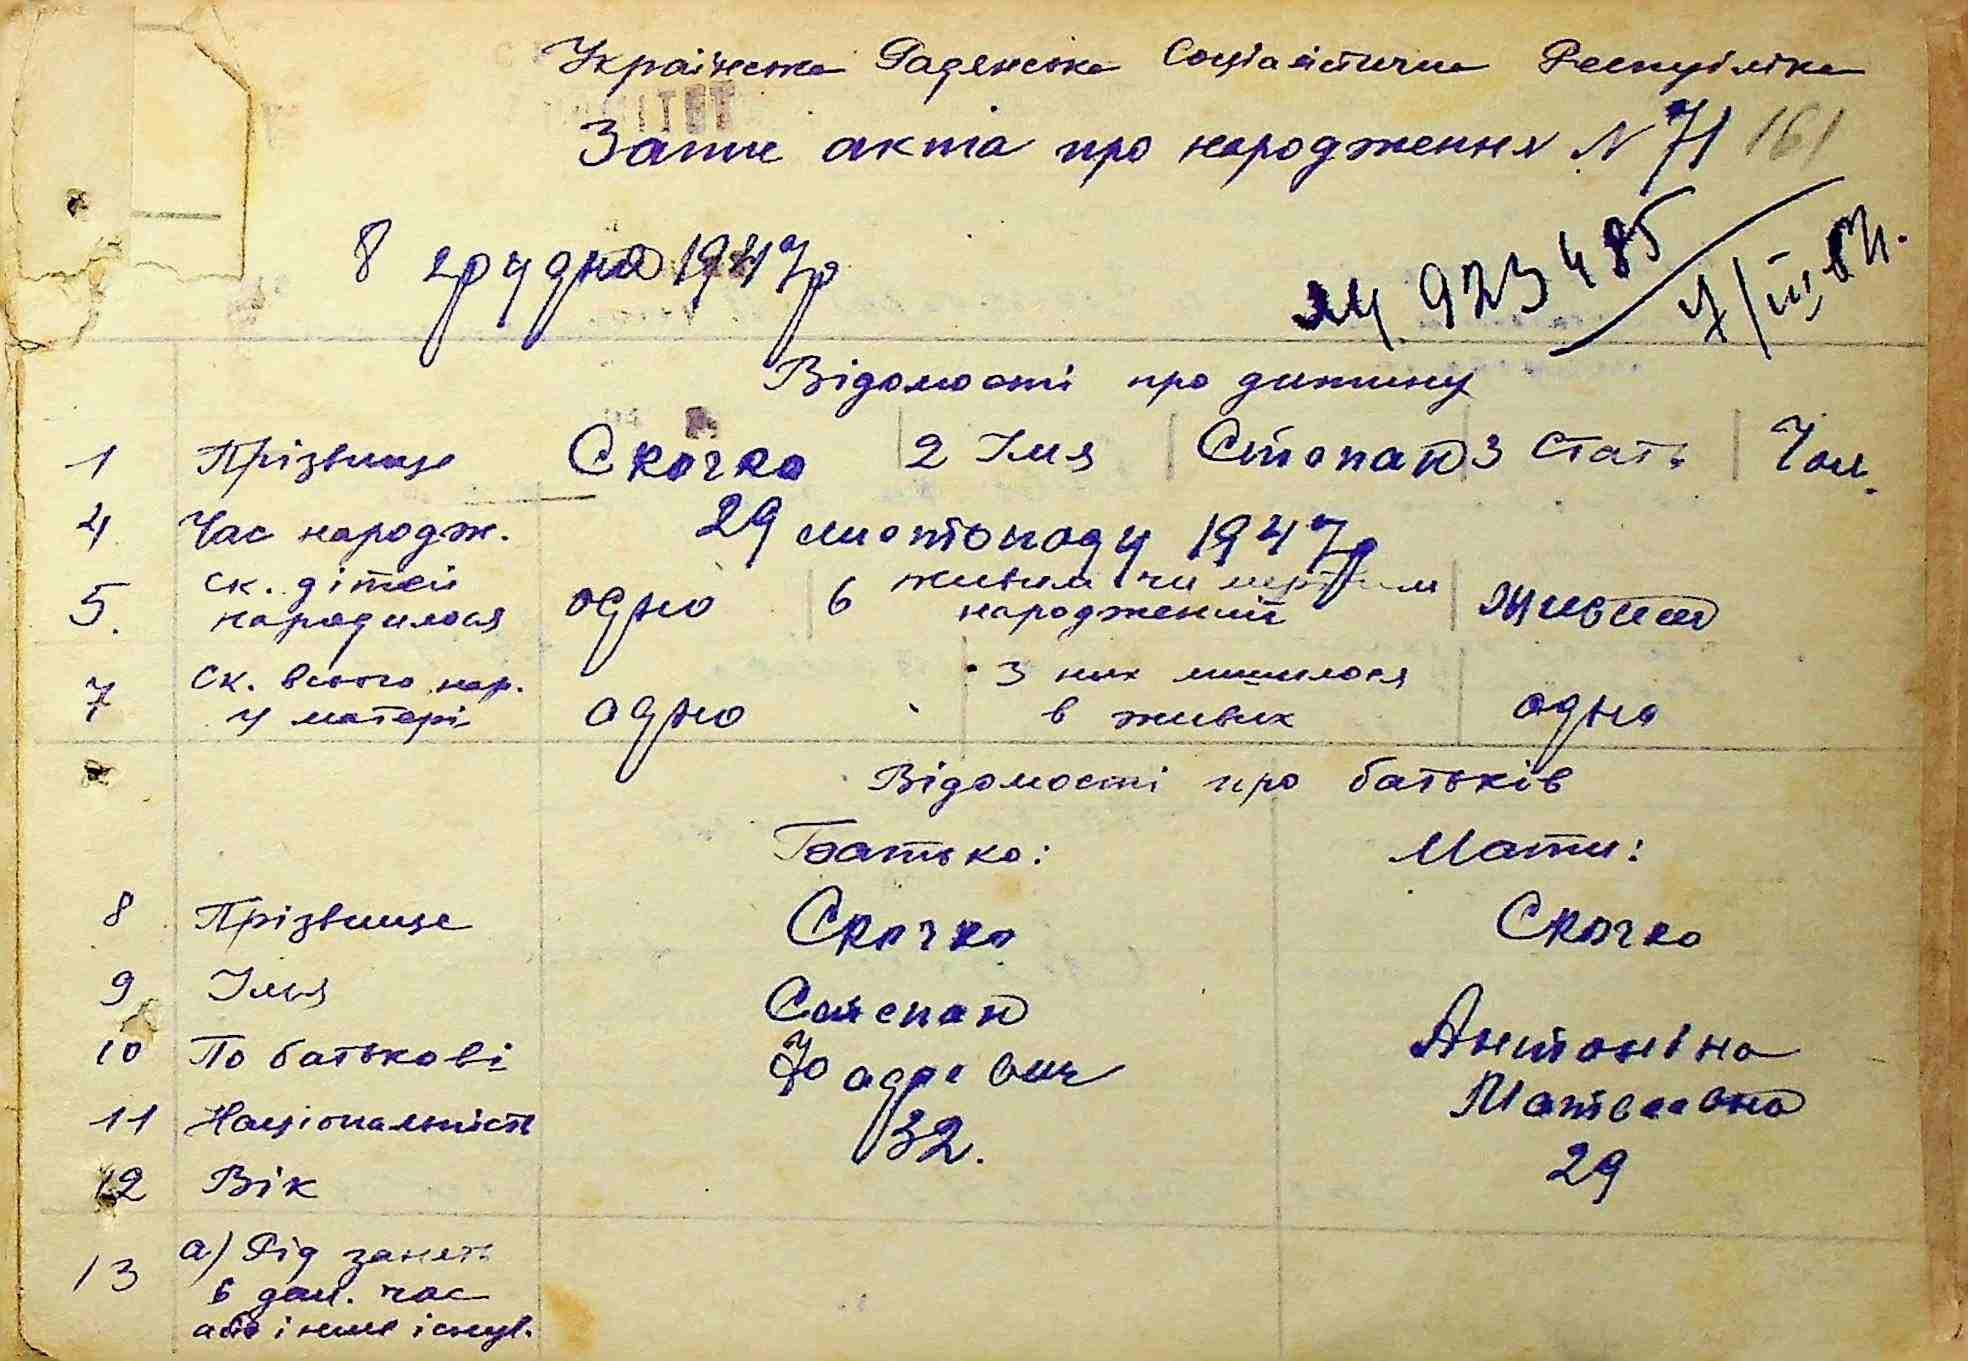 Українська Радянська Соціалістична Республіка
Запис акта про народження N 71 161
8 грудня 1947р
923485
Відомості про дитину
1 Прізвище Скочко 2 Імя Стопан 3 Стать Чол.
4 Час народж. 29 листопаду 1947р
5. ск. дітей народилося одно 6 живим чи мертвим народжений живим
7 Ск. всього нар. у матері одно З них лишилося в живих одно
Відомості про батьків
Батько: Мати:
8 Прізвище Скочко Скочко
9 Імья Степан Антоніна
10 По батькові Матвеевна
11 Національність 32. 29
12 Вік
13 а) Рід занять
в дан. час
або інше існув.